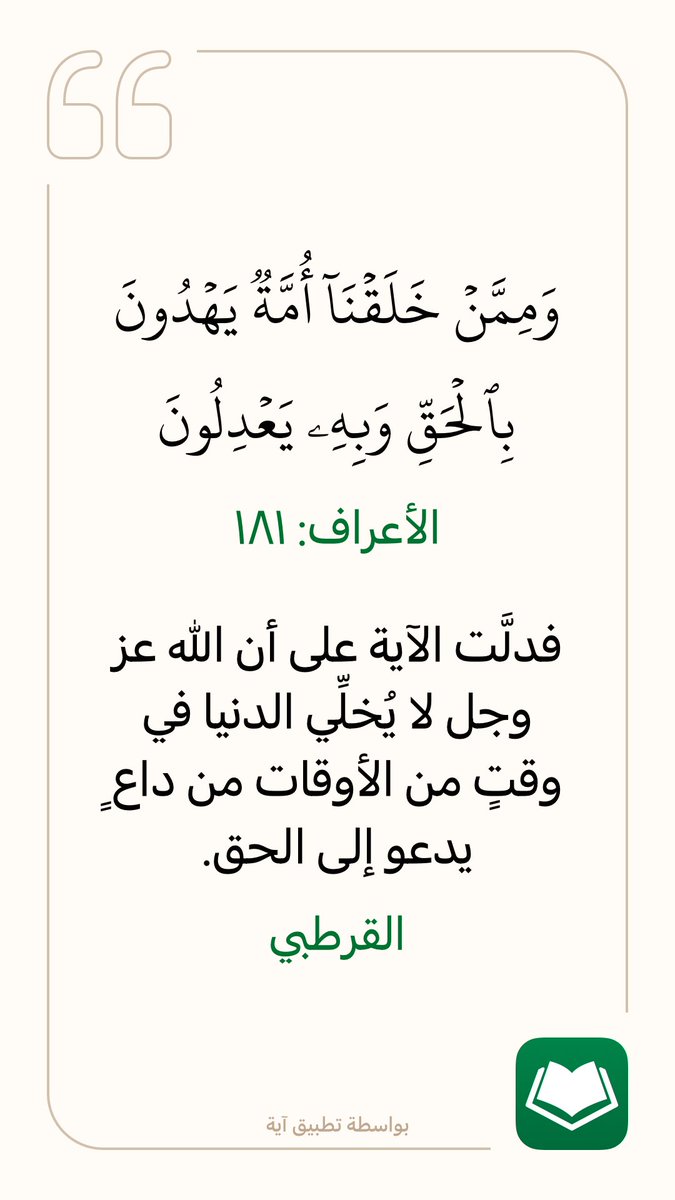 وَمِمَّنۡ خَلَقۡنَآ أُمَّةٞ يَهۡدُونَ
بِٱلۡحَقِّ وَبِهِۦ يَعۡدِلُونَ
الأعراف: ١٨١
فدلَّت الآية على أن الله عز
وجل لا يُخلِّي الدنيا في
وقتٍ من الأوقات من داعٍ
يدعو إلى الحق.
القرطبي
بواسطة تطبيق آية